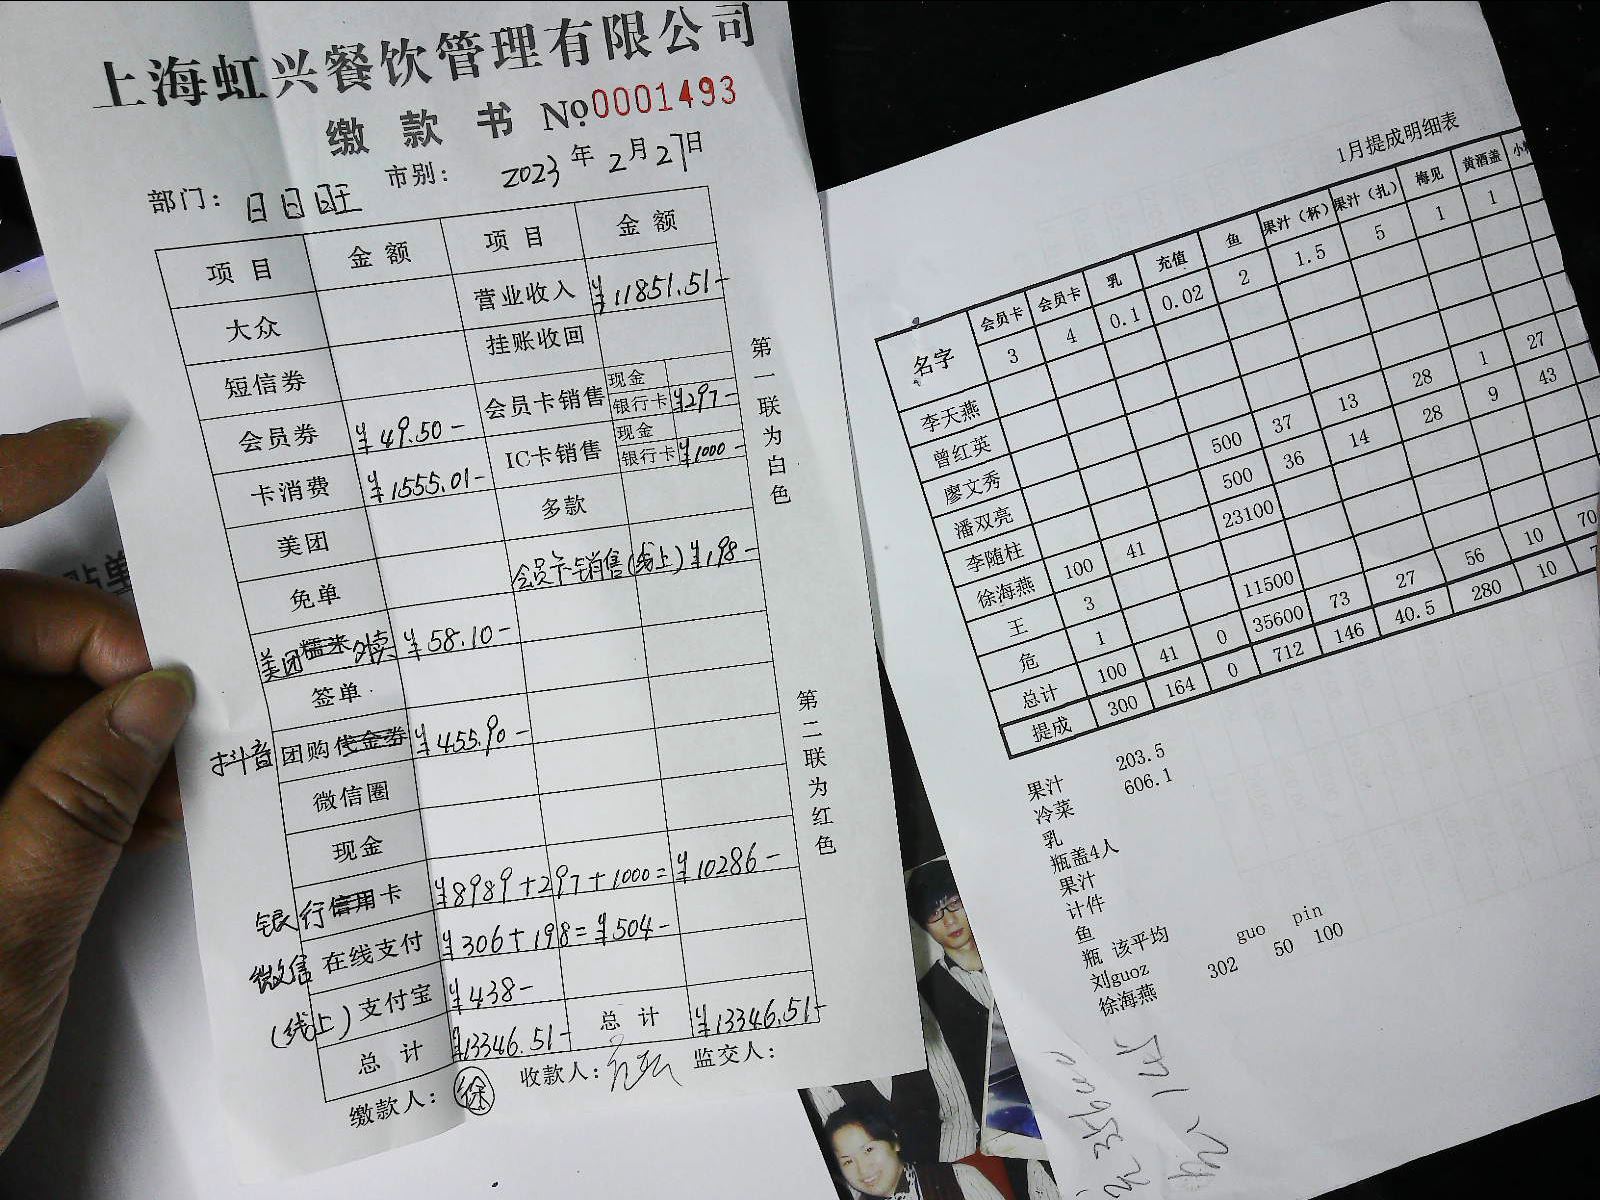 上海虹兴餐饮管理有限公司
缴款书 No.0001493
部门：日日旺 市别： 2023年2月27日
项目 金额 项目 金额
大众 营业收入 ¥11851.51-
短信券 挂账收回
会员券 ¥49.50- 会员卡销售 现金
银行卡 ¥297-
卡消费 ¥1555.01- IC卡销售 现金
银行卡 ¥1000-
美团 多款
免单 会员卡销售(线上) ¥198-
美团糯米 ¥58.10-
签单
抖音团购代金券 ¥455.90-
微信圈
现金
银行信用卡 ¥8989+297+1000=¥10286-
微信在线支付 ¥306+198=¥504-
(线上)支付宝 ¥438-
总计 ¥13346.51- 总计 ¥13346.51-
缴款人：徐 收款人： 监交人：
第一联为白色
第二联为红色
1月提成明细表
名字 会员卡 会员卡 乳 充值 鱼 果汁（杯） 果汁（扎） 梅见 黄酒盖 小
3 4 0.1 0.02 2 1.5 5 1 1
李天燕
曾红英
廖文秀 500 37 13 28 1 27
潘双亮 500 36 14 28 9 43
李随柱 23100
徐海燕 100 41
王 3
危 1 11500
总计 100 41 0 35600 73 27 56 10 70
提成 300 164 0 712 146 40.5 280 10
果汁 203.5
冷菜 606.1
乳
瓶盖4人
果汁
计件
鱼
瓶 该平均 guo pin
刘guoz 302 50 100
徐海燕